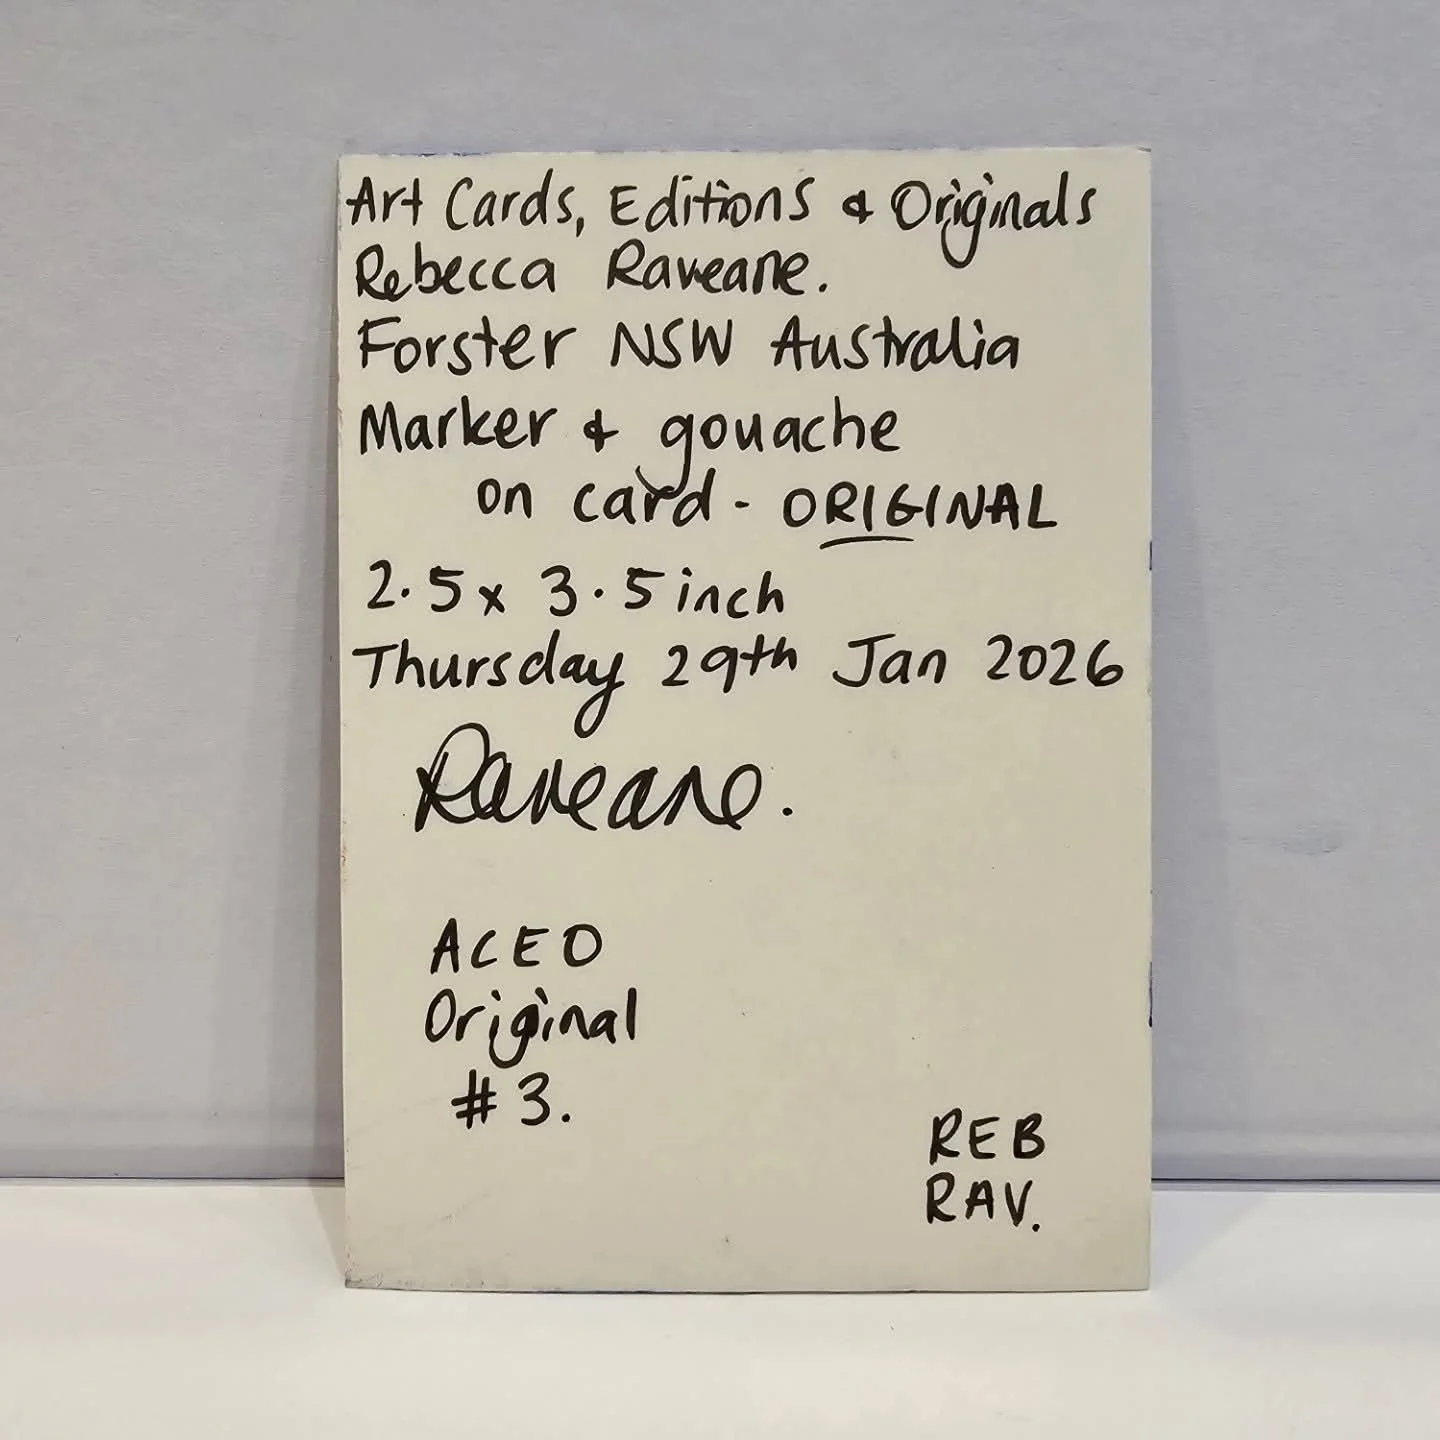 Art Cards, Editions & Originals
Rebecca Raveane.
Forster NSW Australia
Marker & gouache
on card - ORIGINAL
2.5 x 3.5 inch
Thursday 29th Jan 2026
Raveane.
ACEO
Original
#3.
REB
RAV.